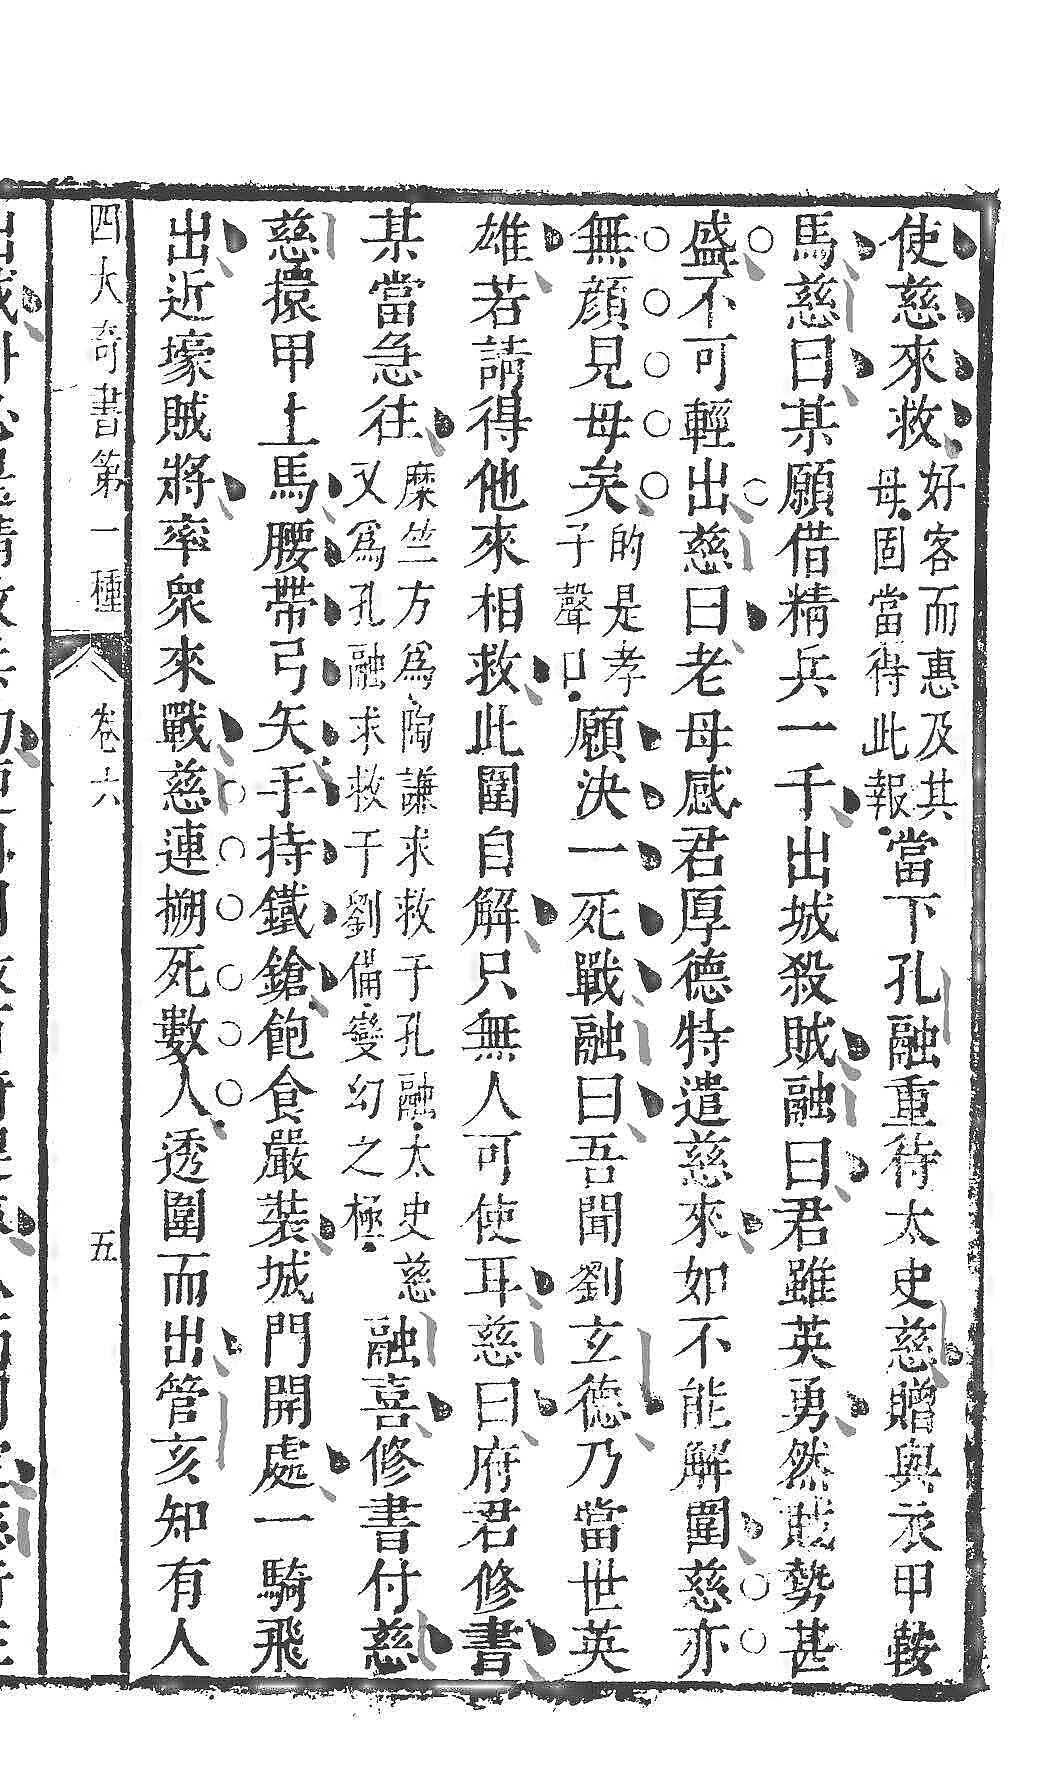 使慈來救好客而惠及其母固當得此報當下孔融重待太史慈贈與衣甲鞍
馬慈曰某願借精兵一千出城殺賊融曰君雖英勇然賊勢甚
盛不可輕出慈曰老母感君厚德特遣慈來如不能解圍慈亦
無顏見母矣的是孝子聲口願決一死戰融曰吾聞劉玄德乃當世英
雄若請得他來相救此圍自解只無人可使耳慈曰府君修書
某當急往糜竺方爲陶謙求救于孔融太史慈又爲孔融求救于劉備變幻之極融喜修書付慈
慈擐甲上馬腰帶弓矢手持鐵鎗飽食嚴裝城門開處一騎飛
出近壕賊將率眾來戰慈連搠死數人透圍而出管亥知有人
四大奇書第一種 卷六 五